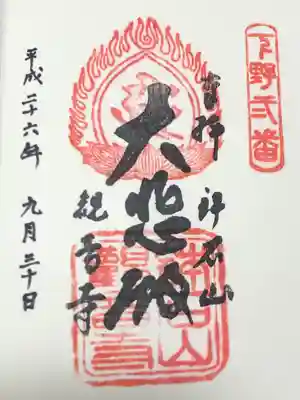 下野弐番
奉拝 補石山
大悲殿
観音寺
平成二十六年 九月三十日